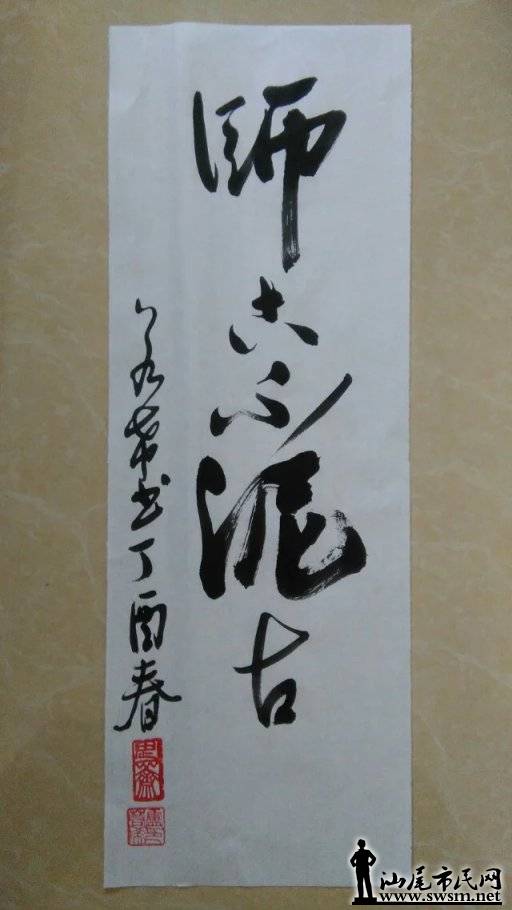 師古不泥古
書丁酉春
汕尾市民网
www.swsm.net